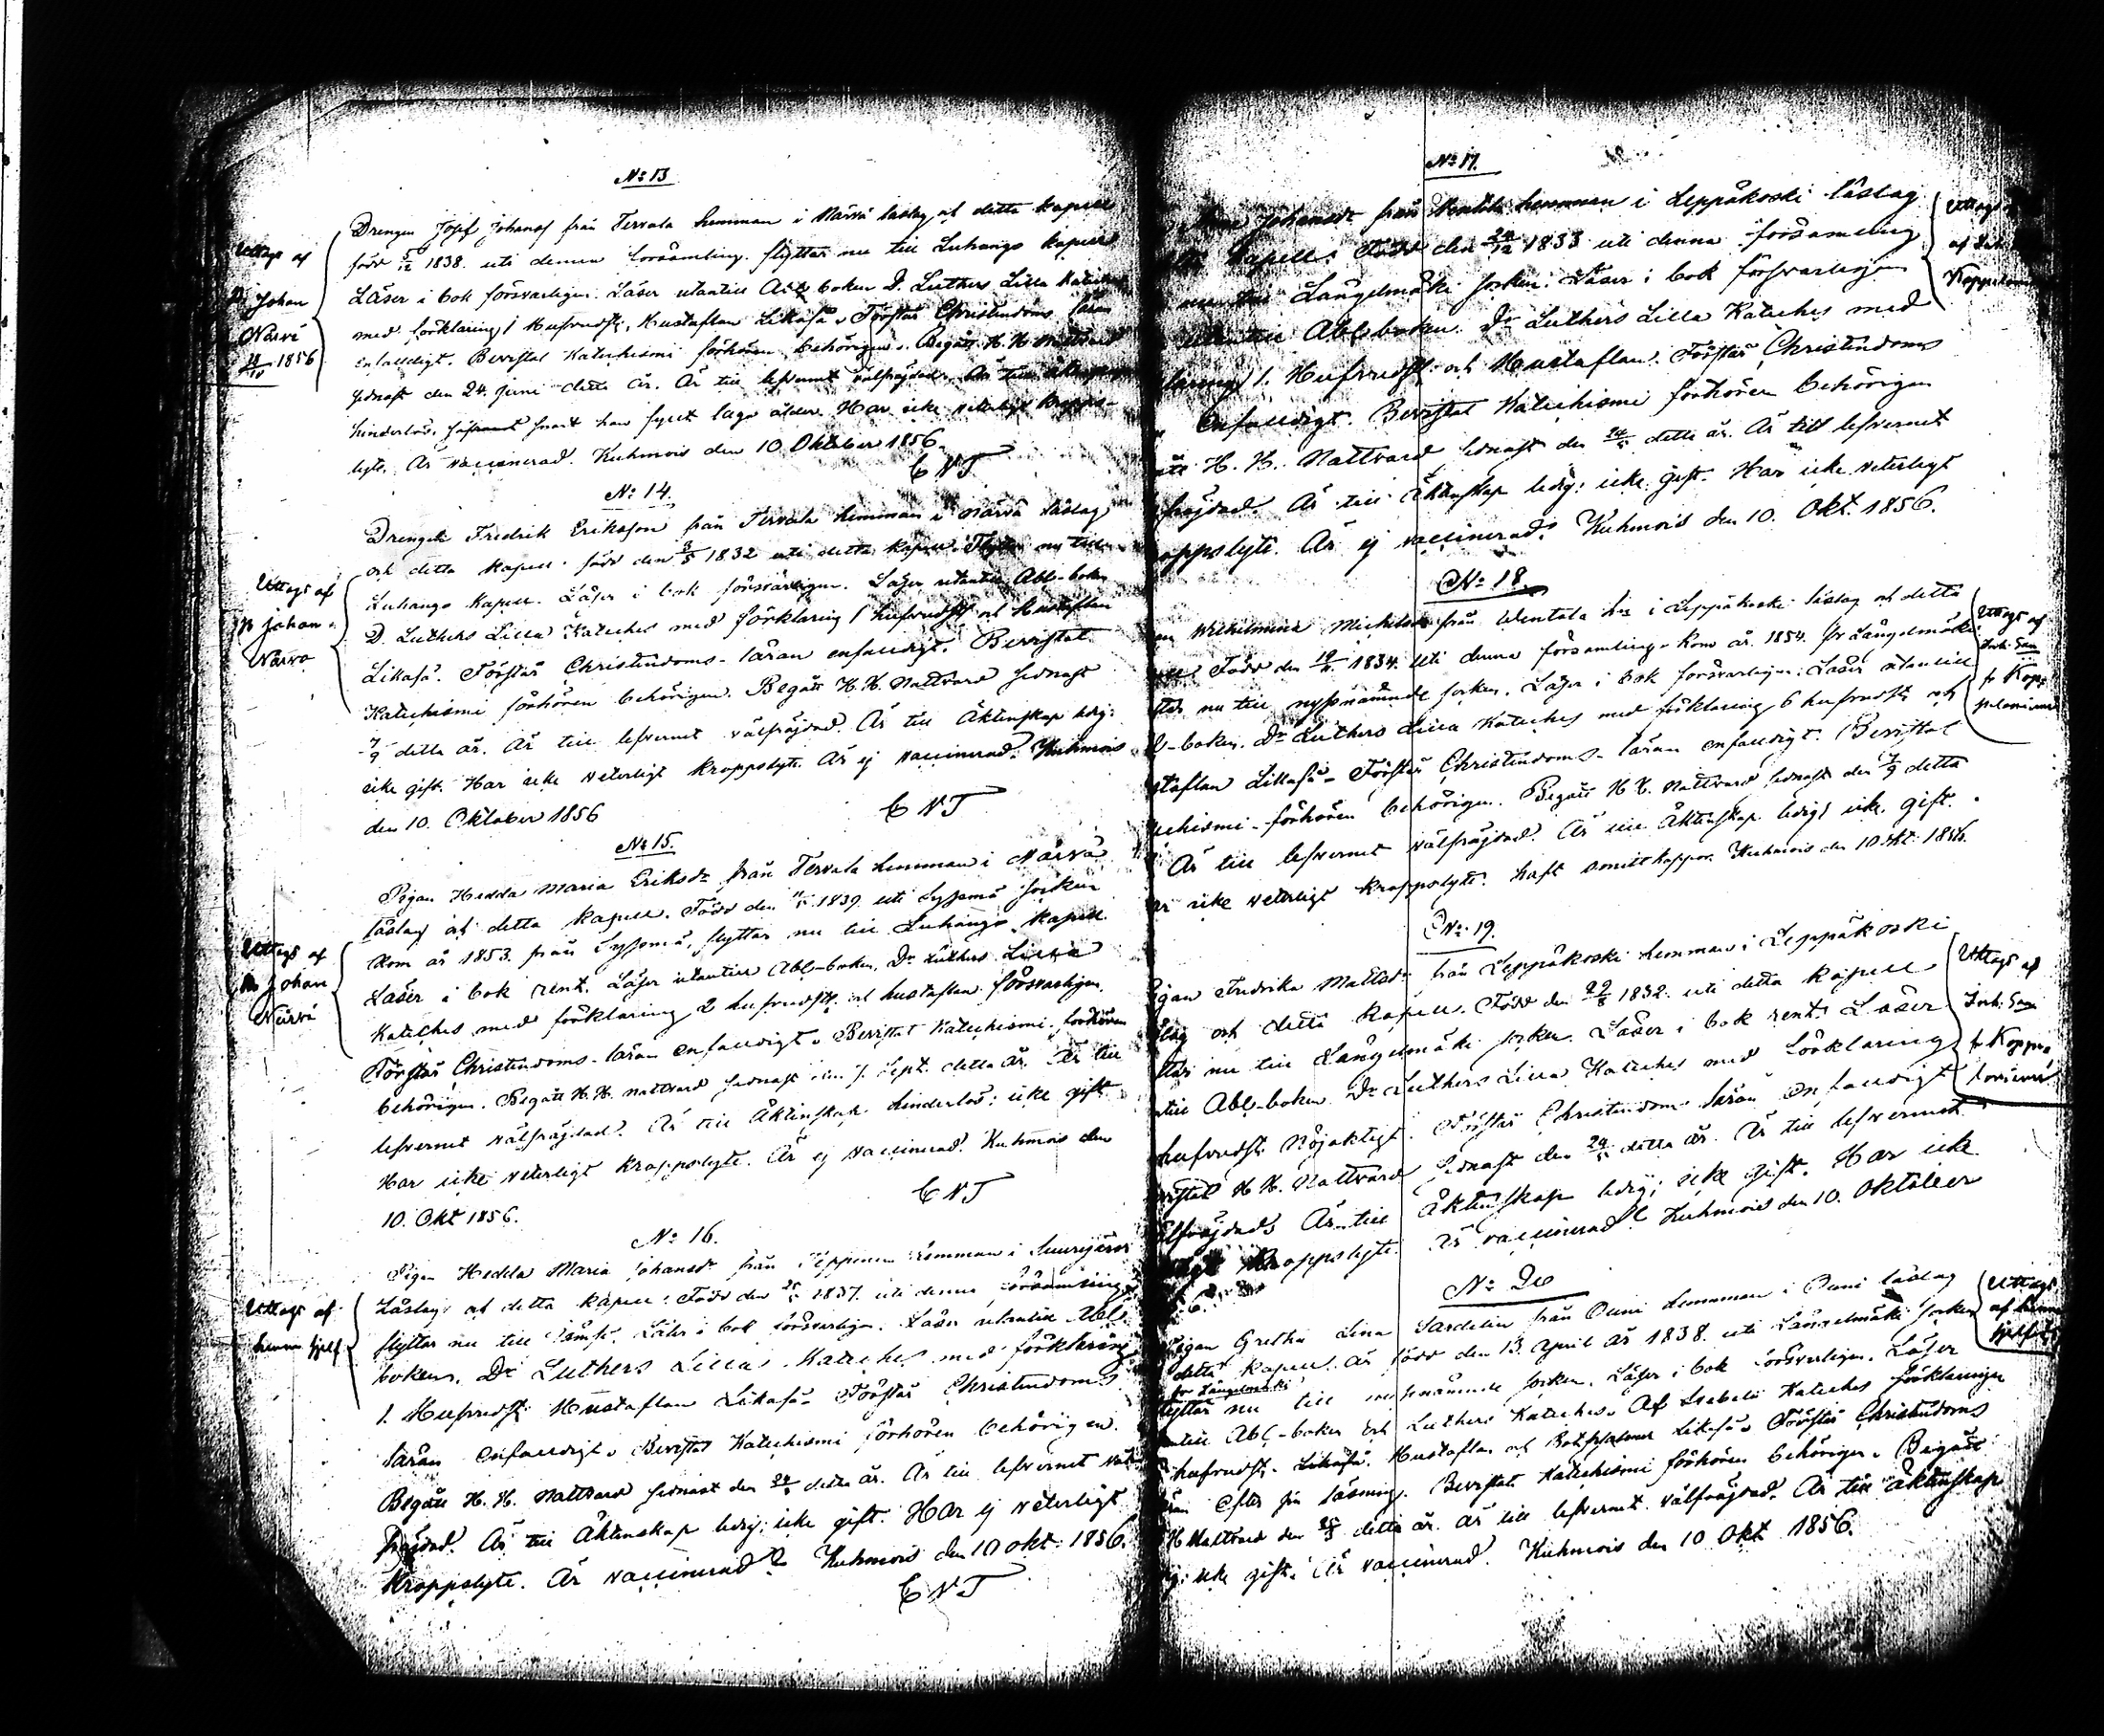 No 13
Drengen Josef Johansf från Tervala hemman i Närvä låslag af detta kapell
född 5/12 1838 uti denna församling flyttar nu till Luhango kapell
Läser i bok försvarligen. Läser utantill Abl boken D. Luthers Lilla Kateches
med förklaring 1 hufvudst, Hustaflan Likaså. Förstår Christendoms läran
enfaldigt. Bevistat Katechismi förhören behörigen. Begått H. H. Nattvard
sednast den 24 Juni detta år. Är till lefvernet välfrejdad. Är till
hinderlös, snart han fyllt laga ålder. Har icke veterligt kropps-
lyte. Är vaccinerad. Kuhmois den 10 Oktober 1856.
C N T
Uttags af
Johan
Närvä
1856
No 14.
Drengen Fredrik Eriksson från Tervala hemman i Närvä låslag
och detta kapell. född den 3/5 1832 uti detta kapell. Flyttar nu till
Luhango Kapell. Läser i bok försvarligen. Läser utantill Abl-boken
D. Luthers Lilla Kateches med förklaring 1 hufvudst och Hustaflan
Likaså. Förstår Christendoms-läran enfaldigt. Bevistat
Katechismi förhören behörigen. Begått H. H. Nattvard sednast
7/9 detta år. Är till lefvernet välfrejdad. Är till Äktenskap ledig:
icke gift. Har icke veterligt kroppslyte. Är ej vaccinerad. Kuhmois
den 10. Oktober 1856
C N T
Uttags af
johan
Närvä
No 15.
Pigan Hedda Maria Eriksdr från Tervala hemman i Närvä
låslag af detta kapell. Född den 1839 uti Sysmä Socken
Kom år 1853 från Sysmä, flyttar nu till Luhango kapell
Läser i bok rent. Läser utantill Abl-boken, Dr Luthers Lilla
Kateches med förklaring 2 hufvudst, och hustaflan försvarligen.
Förstår Christendoms-läran enfaldigt. Bevistat Katechismi förhören
behörigen. Begått H. H. nattvard sednast den 7. Sept. detta år. Är till
lefvernet välfrejdad. Är till Äktenskap hinderlös: icke gift.
Har icke veterligt kroppslyte. Är ej vaccinerad. Kuhmois den
10. Okt 1856.
C N T
Uttags af
Johan
Närvä
No 16.
Pigan Hedda Maria Johansdr från Seppenen hemman i Suurijärvi
Låslag af detta kapell. Född den 1837. uti denna församling
flyttar nu till Jämsä. Läser i bok försvarligen. Läser utantill Abl-
boken, Dr Luthers Lilla Kateches med förklaring
1. Hufvudst Hustaflan Likaså. Förstår Christendoms
läran enfaldigt. Bevistat Katechismi förhören behörigen.
Begått H. H. Nattvard sednast den 24/ detta år. Är till lefvernet väl-
frejdad. Är till Äktenskap ledig; icke gift. Har ej veterligt
Kroppslyte. Är vaccinerad. Kuhmois den 10 okt. 1856.
C N T
Uttags af
henne sjelf
No 17.
Johansdr från hemman i Leppäkoski låslag
Kapell. Född den 24/12 1833 uti denna församling
nu till Längelmäki Socken. Läser i bok försvarligen
utantill Abl boken. Dr Luthers Lilla Kateches med
1. Hufvudst, och Hustaflan. Förstår Christendoms
enfaldigt. Bevistat Katechismi förhören behörigen
H. H. Nattvard sednast den 24/ detta år. Är till lefvernet
frejdad. Är till Äktenskap ledig: icke gift. Har icke veterligt
kroppslyte. Är ej vaccinerad. Kuhmois den 10. Okt. 1856.
Uttags
af
No 18
Wilhelmina Michelsdr från Wentala hn i Leppäkoski låslag och detta
Född den 19/ 1834. uti denna församling. Kom år 1854 fr Längelmäki
nu till nyssnämnde socken. Läser i bok försvarligen. Läser utantill
boken. Dr Luthers Lilla Kateches med förklaring 6 hufvudst och
Likaså. Förstår Christendoms-läran enfaldigt. Bevistat
förhören behörigen. Begått H. H. Nattvard sednast den 7/9 detta
Är till lefvernet välfrejdad. Är till Äktenskap ledig; icke gift.
icke veterligt kroppslyte. haft smittkoppor. Kuhmois den 10 Okt. 1856.
Uttags af
No 19.
Fredrika Mattsdr från Leppäkoski hemman i Leppäkoski
och detta kapell. Född den 29/8 1832. uti detta kapell
nu till Längelmäki socken. Läser i bok rent. Läser
Abl-boken Dr Luthers Lilla Kateches med förklaring
hufvudst. Nöjaktigt. Förstår Christendoms läran enfaldigt
H. H. Nattvard sednast den 24/ detta år. Är till lefvernet
Är till Äktenskap ledig; icke gift. Har icke
kroppslyte. Är vaccinerad. Kuhmois den 10. Oktober
Uttags af
No 20
Pigan Gretha Lina Sardelin från Ouni hemman i Ouni låslag
detta kapell. är född den 13. April år 1838. uti Längelmäki socken
fr Längelmäki
flyttar nu till socken. Läser i bok försvarligen. Läser
Abl-boken och Luthers Kateches. Af Svebelii Kateches förklaringen
hufvudst. Likaså. Hustaflan och Botpsalmer Likaså. Förstår Christendoms
efter sin läsning. Bevistat Katechismi förhören behörigen. Begått
H Nattvard den detta år. är till lefvernet välfrejdad. Är till äktenskap
icke gift. Är vaccinerad. Kuhmois den 10 Okt 1856.
Uttags
af henne
sjelf